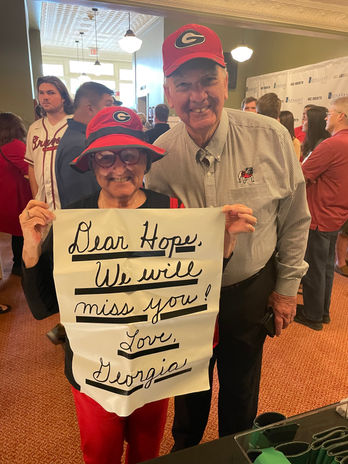 Dear Hope,
We will
miss you!
Love,
Georgia
G
G